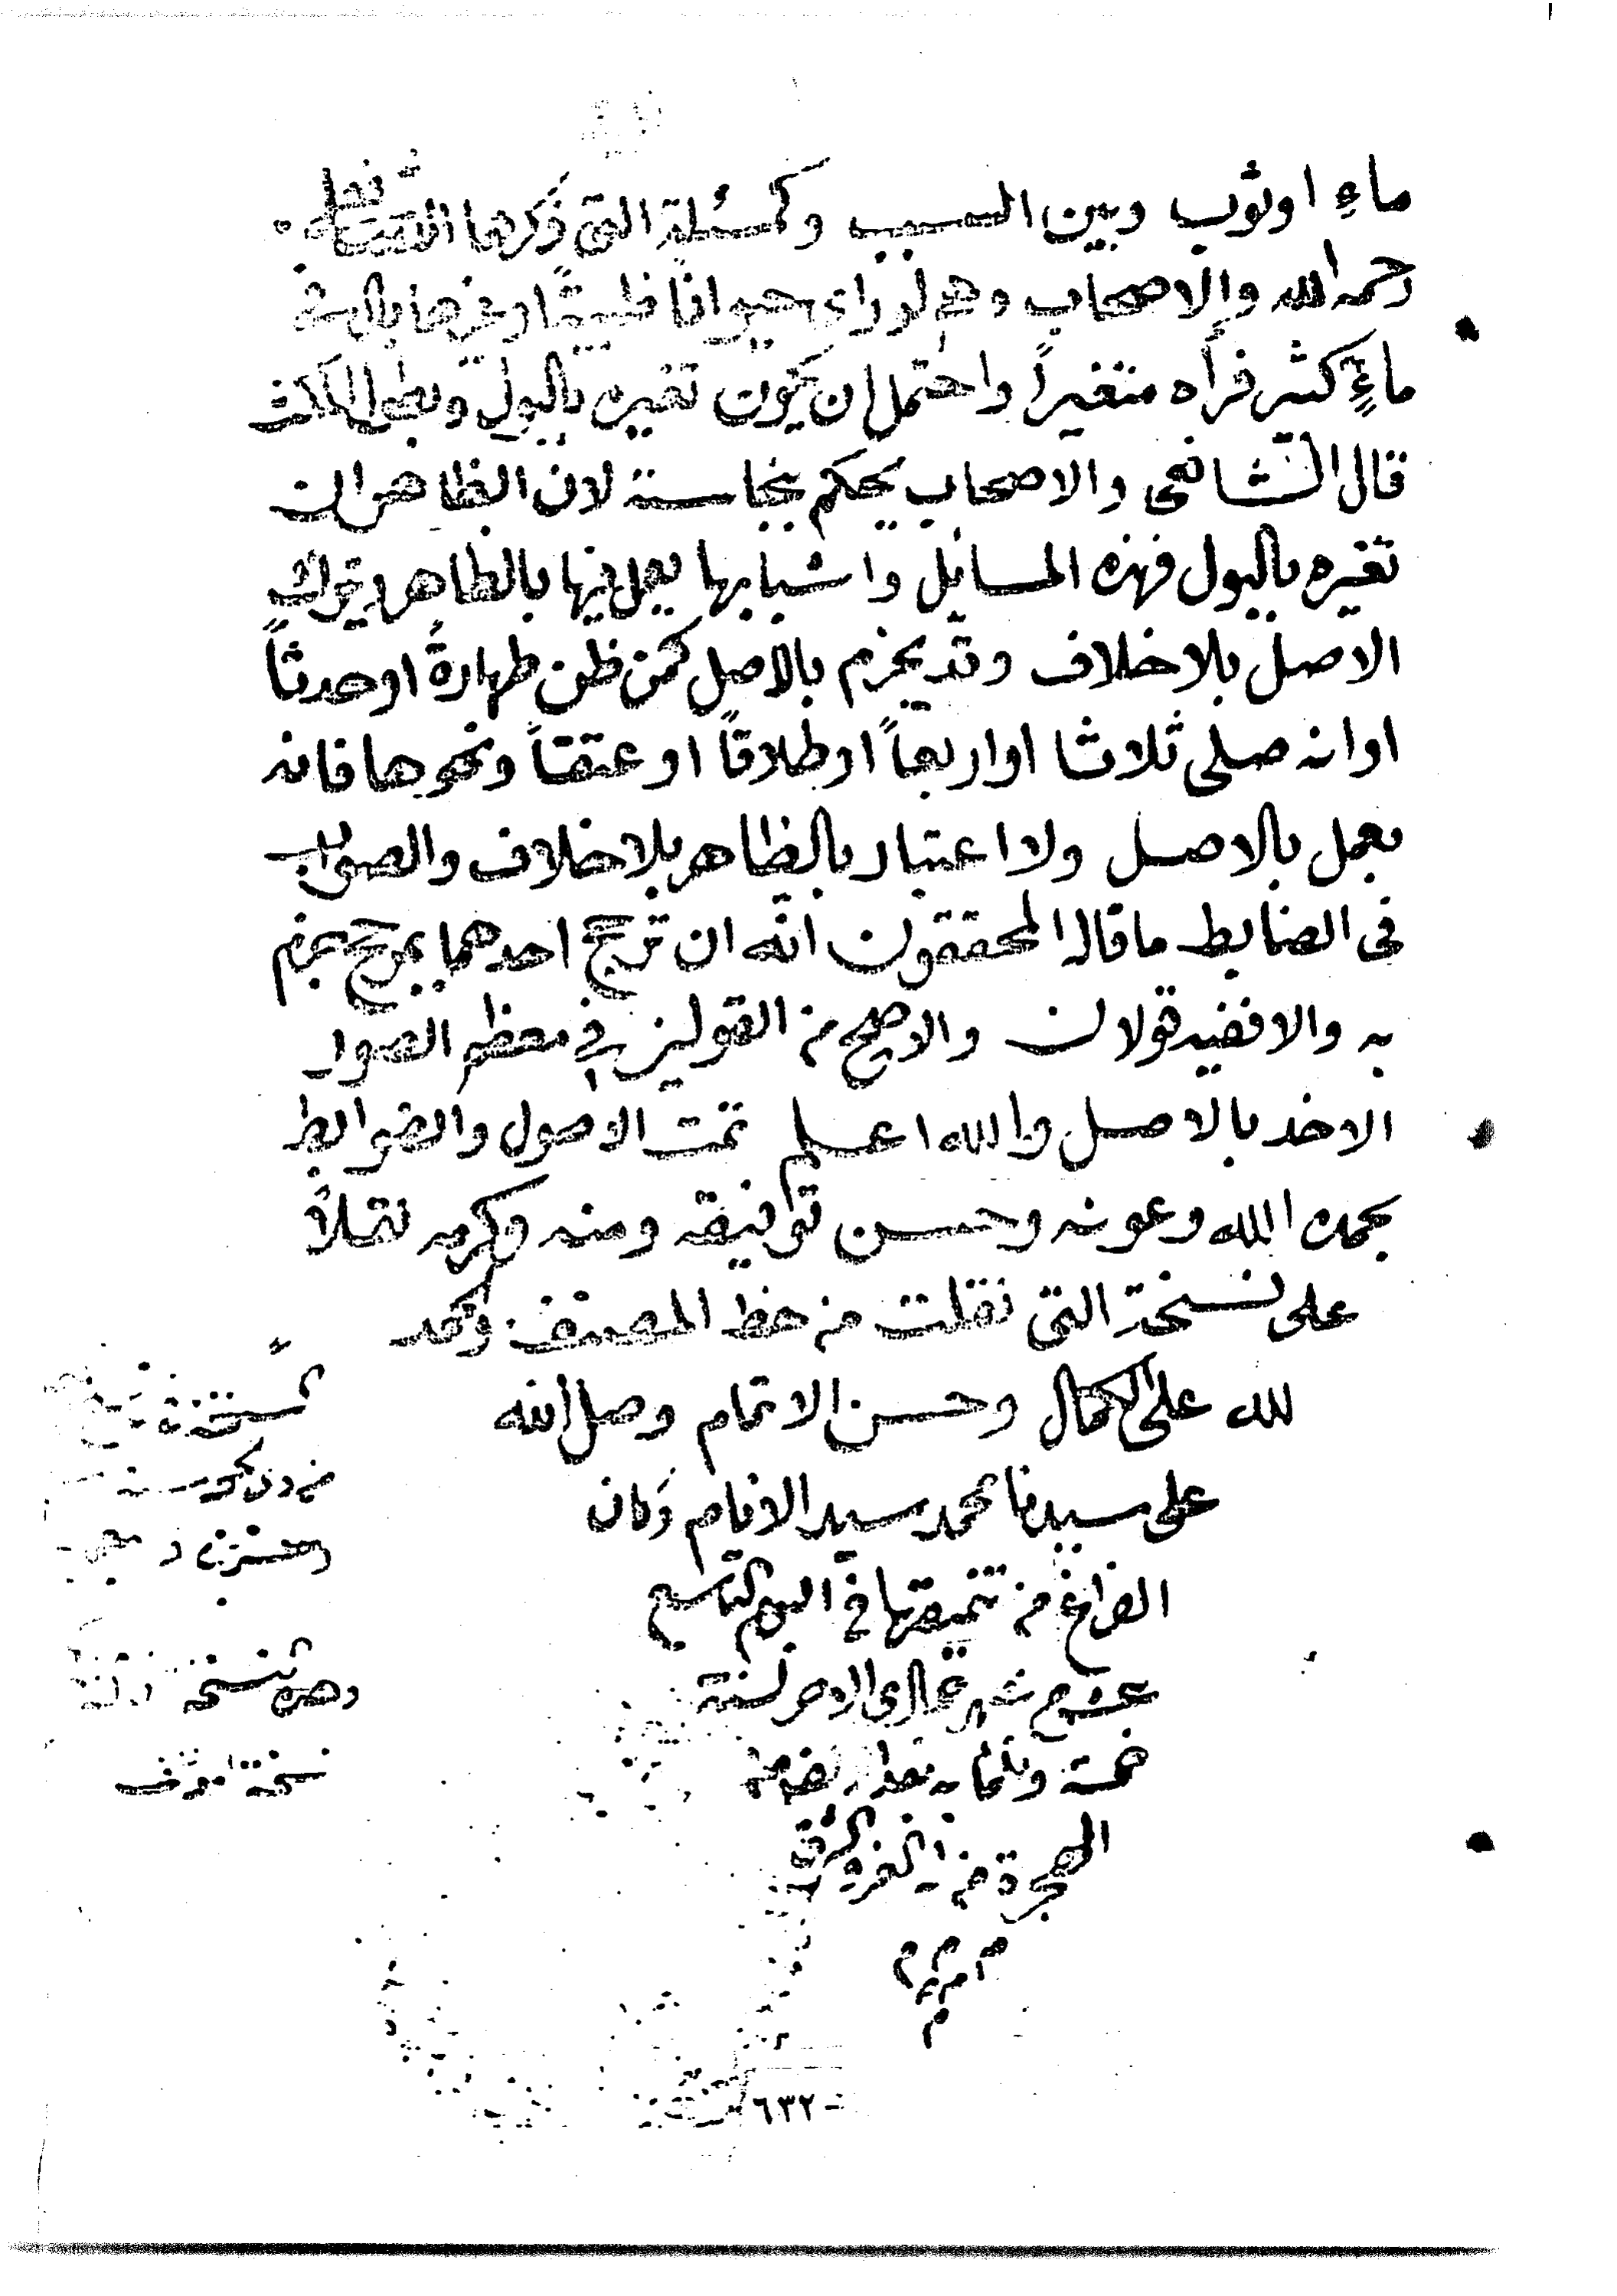 ماءِ او ثوب وبين السبب وكمسئلة التى ذكرها الشافعى
رحمه الله والاصحاب وهى لو راى حيواناً ظبيةً او غيرها بال فى
ماءٍ كثير فرأه متغيراً واحتمل ان يكون تغيره بالبول وبطول المكث
قال الشافعى والاصحاب يحكم بنجاسته لان الظاهر ان
تغيره بالبول فهذه المسائل واشباهها يعمل فيها بالظاهر ويترك
الاصل بلا خلاف وقد يجزم بالاصل كمن ظن طهارةً او حدثاً
او انه صلى ثلاثا او اربعاً او طلاقاً او عتقاً ونحوها فانه
يعمل بالاصل ولا اعتبار بالظاهر بلا خلاف والصواب
فى الضابط ما قاله المحققون انه ان ترجح احدهما بمرجح جزم
به والا ففيه قولان والاصح من القولين فى معظم الصور
الاخذ بالاصل والله اعلم تمت الاصول والضوابط
بحمد الله وعونه وحسن توافيقه ومنه وكرمه نقلاً
على نسخة التى نقلت من خط المصنف والحمد
لله على الكمال وحسن الاتمام وصل الله
على سيدنا محمد سيد الانام وكان
الفراغ من تنميقها فى اليوم التاسع
عشر من شهر جمادى الاخر لسنة
خمسة وثلثمايه بعد الف من
الهجرة من له العز والشرف
م م م م م
م
نسخة
من ذى
وعشرين و
وهذه نسخة
نسخة المؤلف
٦٣٢